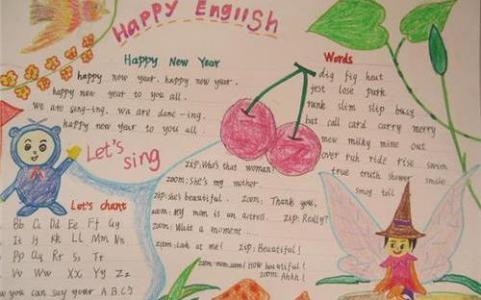 Happy English
Happy New Year
happy new year. happy new year.
happy new year to you all.
we are sing-ing. we are danc-ing.
happy new year to you all.
Let's
sing
Words
dig fig heat
jest lose park
tank slim slip busy
but call card carry merry
mew milky mine out
over ruh ride rise swim
true truth shower smile
smog tall
zip: Who's that woman?
zoom: She's my mother.
zip: she's beautiful. zoom: Thank you,
zoom: My mom is an actress. zip: Really?
zoom: Wait a moment....
zoom: Look at me! zip: Beautiful!
zoom: mom, mom! How beautiful!
zoom: Ahhh!
Let's chant
Bb Cc Dd Ee Ff Gg
Ii Jj Kk Ll Mm Nn
Pp Qq Rr Ss Tt
Vv Ww Xx Yy Zz
you can say your A.B.C's